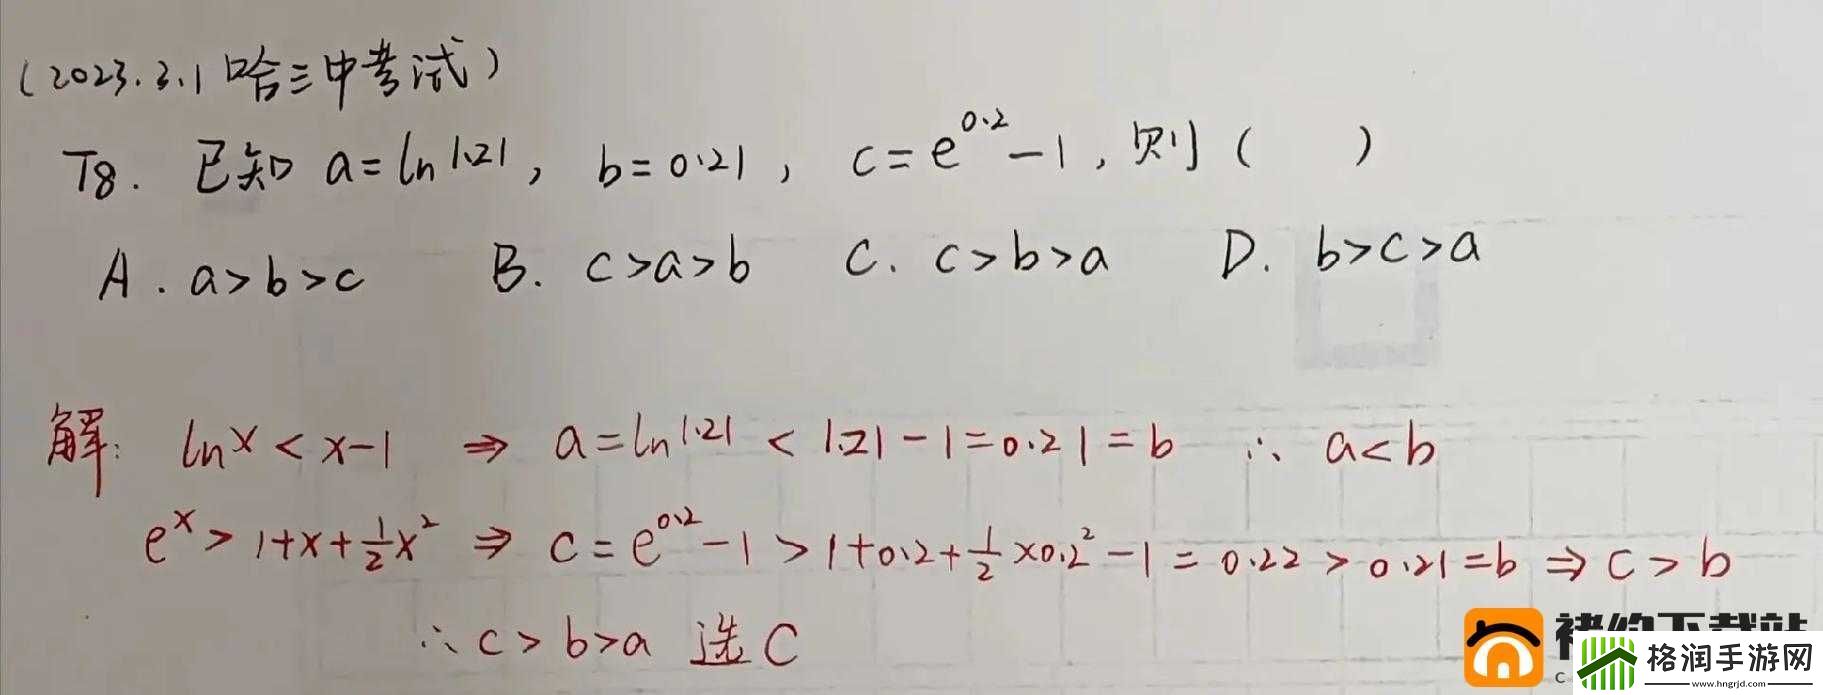 (2023.3.1 哈三中考试)
T8. 已知 a=ln1.21, b=0.21, c=e^0.2-1, 则( )
A. a>b>c B. c>a>b C. c>b>a D. b>c>a
解: lnx<x-1 ⇒ a=ln1.21<1.21-1=0.21=b ∴ a<b
e^x>1+x+1/2x² ⇒ c=e^0.2-1>1+0.2+1/2×0.2²-1=0.22>0.21=b ⇒ c>b
∴ c>b>a 选C
格润手游网
www.hngrjd.com